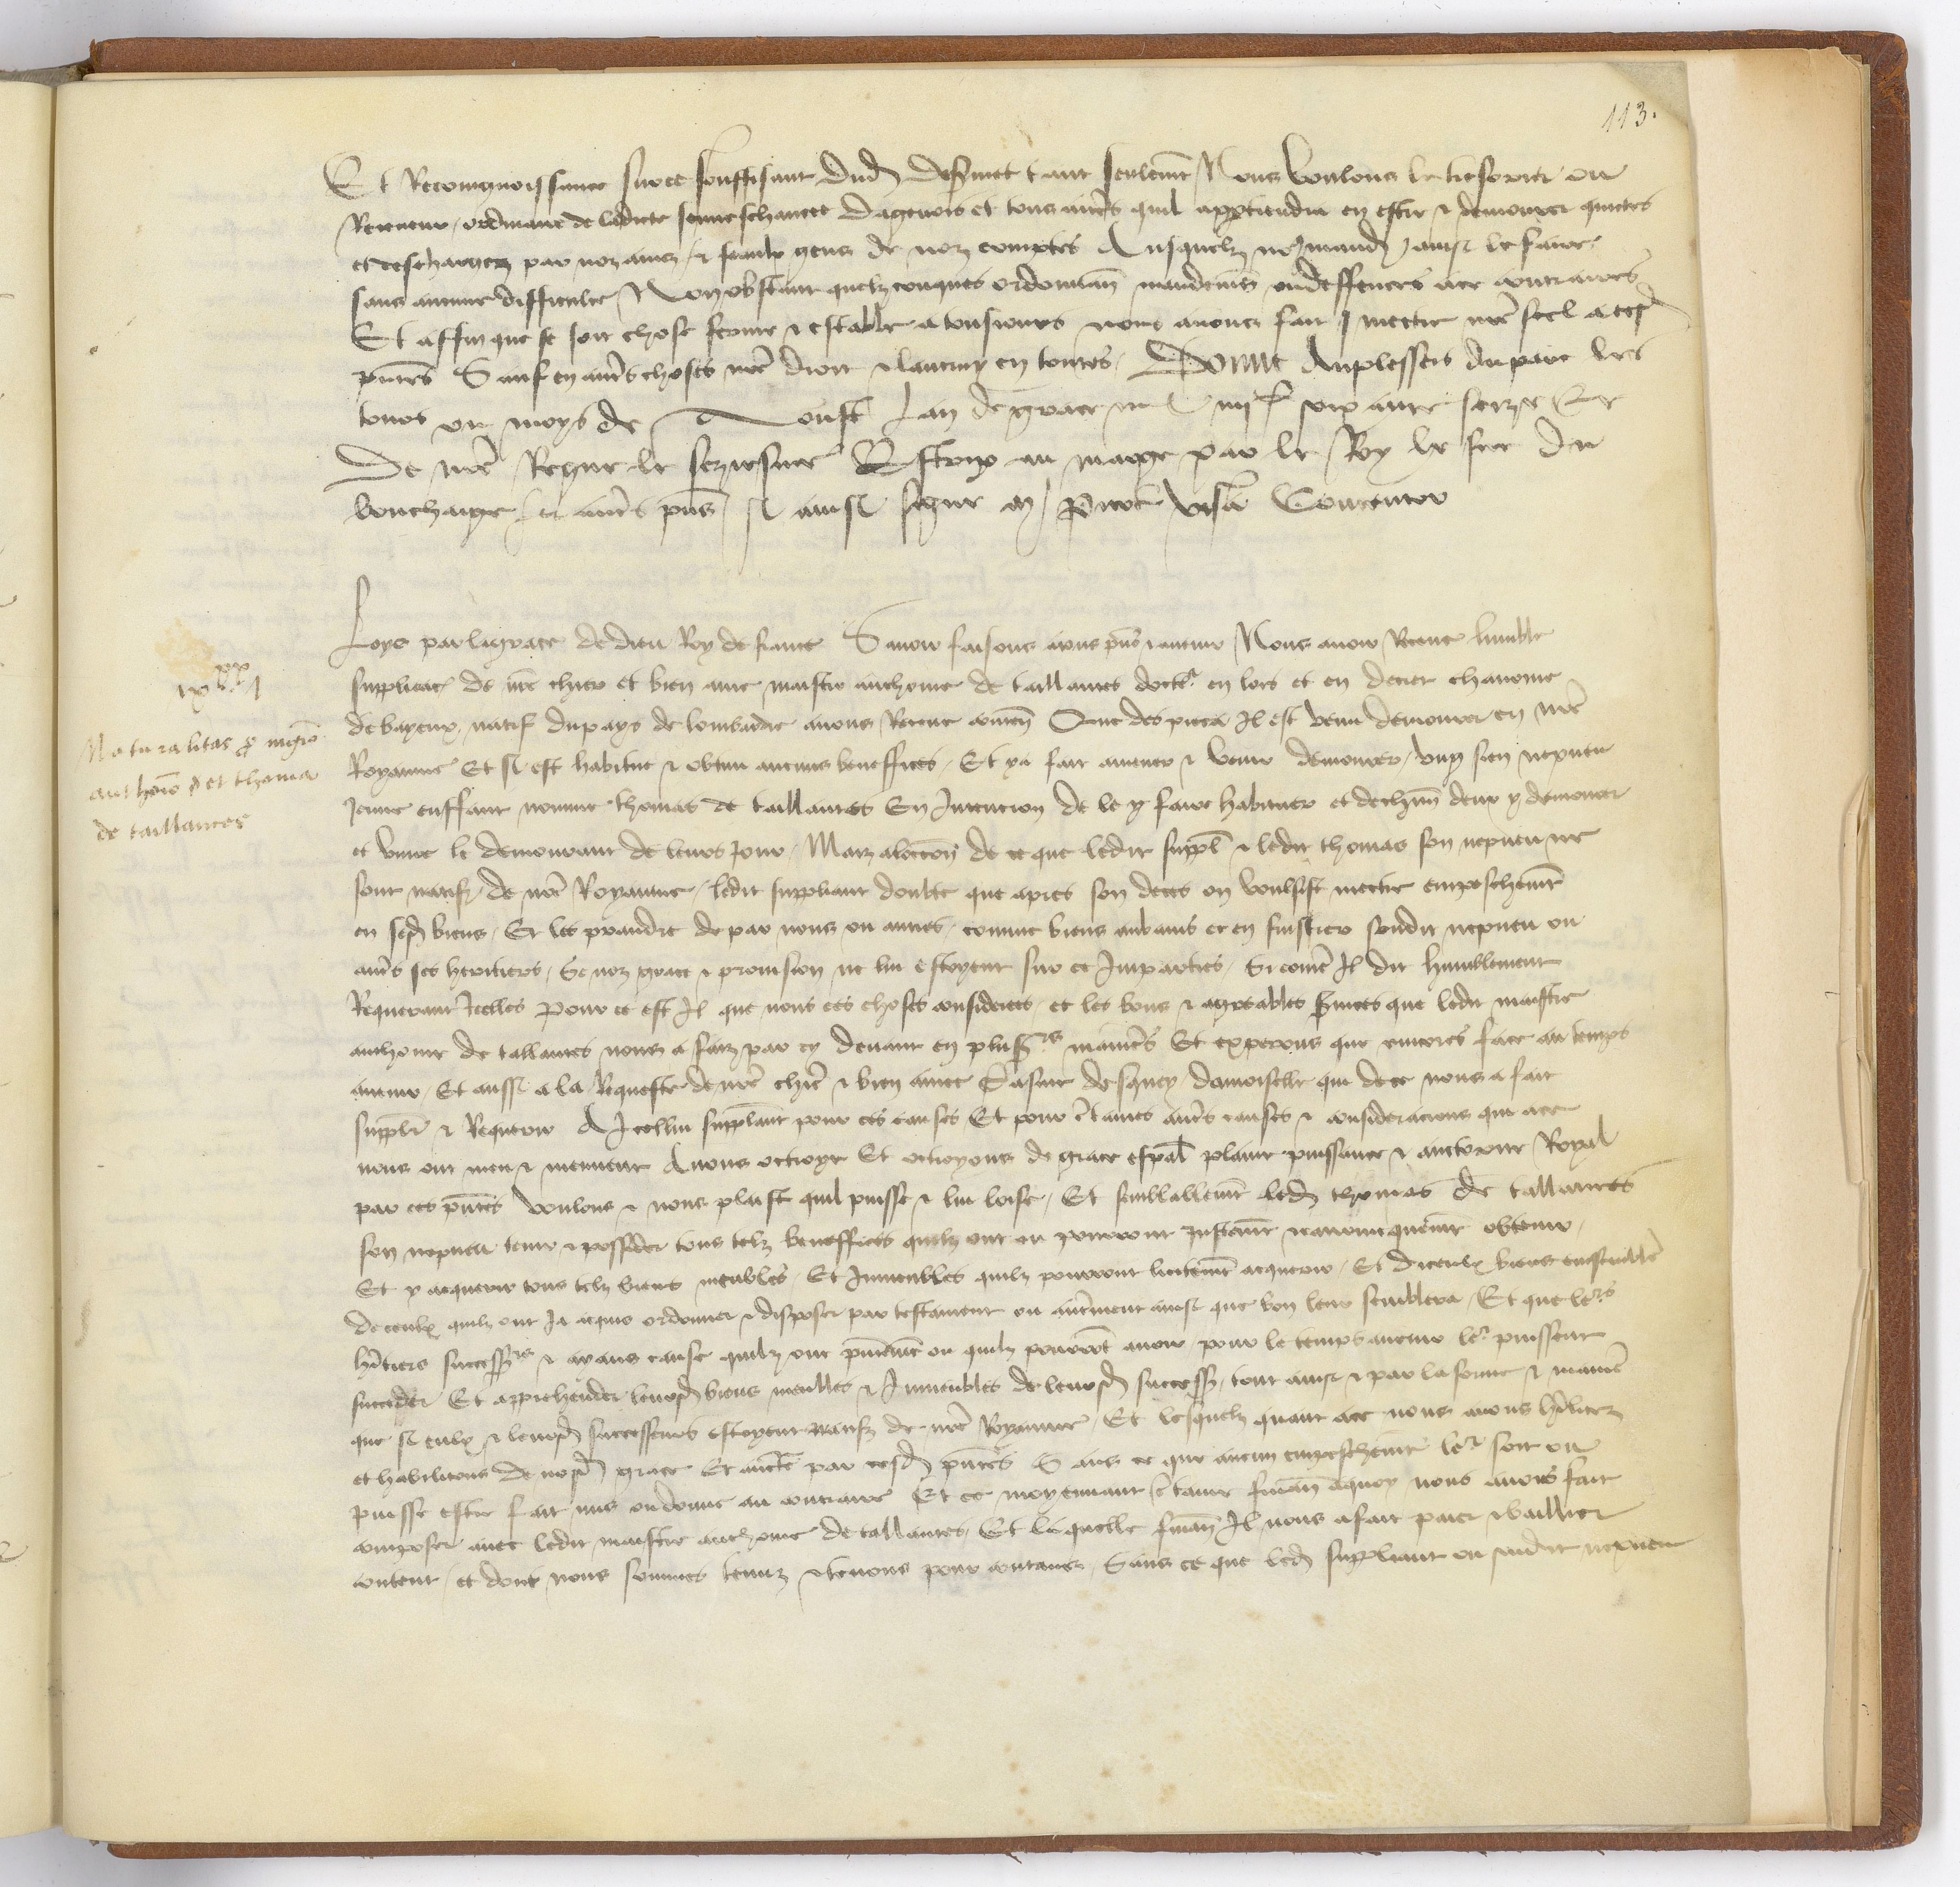 113.
Et Recongnoissance sur ce souffisant dud. desmet tant seulemt Nous voulons le tresorier ou
Receveur ordinaire de ladicte seneschaucee dagenois et tous autrs quil appartiendra en estre & demourer quictes
et deschargez par noz amez & feaulx gens de noz comptes Ausquelz nous mandons ainsi le faire
sans aucune difficulte Nonobstant quelzconques ordonnan mandemens ou deffences a ce contraires
Et affin que se soit chose ferme & estable a tousiours nous avons fait mectre nre seel a cesd
pntes Sauf en autrs choses nre droit & lautruy en toutes Donne Auplesseis du parc les
tours ou moys de Aoust Lan de grace mil IIIIc soixante seize Et
De nre Regne le seziesme Et Escript au marge par le Roy le sire du
bouchaige et autrs pns & ainsi signe Picot Visa Contentor
Loys par la grace de dieu Roy de france Savoir faisons a tous pns & avenir Nous avoir Receue humble
supplicacion de nre chier et bien ame maistre anthoine de taillantes docteur en lois et en decret chanoine
de bayeux natif du pays de lombardie avons Receue conten Que des pieca Il est venu demourer en nre
Royaume Et si est habitue & obtenu aucuns beneffices Et y a fait amener & venir demourer ung sien nepveu
Jeune enffant nomme thomas de taillantes En Intencion de le y faire habituer et de chun deux y demourer
et vivre le demourant de leurs jours Mais aloccon de ce que ledit suppl & ledit thomas son nepveu ne
sont natifz de nre Royaume ledit suppliant doubte que apres son deces on voulsist mectre empeschemt
en sesd biens Et les prandre de par nous ou autres comme biens aubains et en frustrer sondit nepveu ou
autrs ses heritiers Se noz grace & provision ne lui estoyent sur ce Imparties Si come Il dit humblement
Requerant Icelles Pour ce est Il que nous ces choses considerees et les bons & agreables services que ledit maistre
anthoine de tallantes nous a faiz par cy devant en plusrs manieres Et esperons que encores face au temps
avenir Et aussi a la Requeste de nre chiere & bien amee damoiselle qui de ce nous a fait
supplier & Requerir A Icellui suppliant pour ces causes Et pour certaines autrs causes & consideracions qui a ce
nous ont meu & meuvent Avons octroye Et octroyons de grace espal plaine puissance & auctorite Royal
par ces pntes voulons & nous plaist quil puisse & lui loise Et semblablemt led thomas de tallantes
son nepveu tenir & posseder tous telz beneffices quilz ont ou pourront justemt & canonicquemt obtenir
Et y acquerir tous telz biens meubles Et Immeubles quilz pourront licitemt acquerir Et diceulx biens ensemble
de ceulx quilz ont Ja acquis ordonner & disposer par testament ou autrment ainsi que bon leur semblera Et que leurs
hritiers successrs & ayans cause quilz ont pntement ou quilz pourront avoir pour le temps avenir leur puissent
succeder Et apprehender leursd biens meubles & Immeubles de leursd success tout ainsi & par la forme & maniere
que si eulx & leursd successeurs estoyent natifz de nre Royaume Et lesquelz quant a ce nous avons habilitez
et habilitons de nosd grace Et aucte par cesd pntes Sans ce que aucun empeschemt leur soit ou
puisse estre fait mis ou donne au contraire Et ce moyennant certaine finan a quoy nous avons fait
composer avec ledit maistre anthoine de tallantes Et laquelle finan Il nous a fait paier & baillier
content et dont nous sommes tenuz & tenons pour contans Sans ce que led suppliant ou sondit nepveu
Naturalitas pro magro
anthoio et thoma
de taillantes